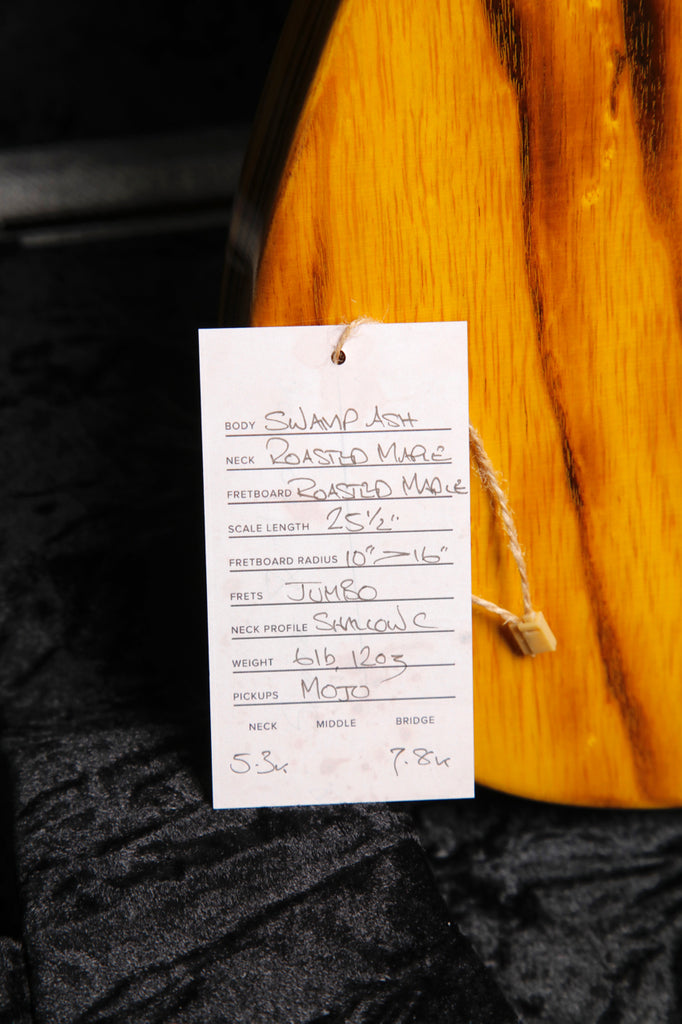 BODY SWAMP ASH
NECK ROASTED MAPLE
FRETBOARD ROASTED MAPLE
SCALE LENGTH 25 1/2"
FRETBOARD RADIUS 10" > 16"
FRETS JUMBO
NECK PROFILE SHALLOW C
WEIGHT 6lb, 12oz
PICKUPS MOJO
NECK MIDDLE BRIDGE
5.3K 7.8K